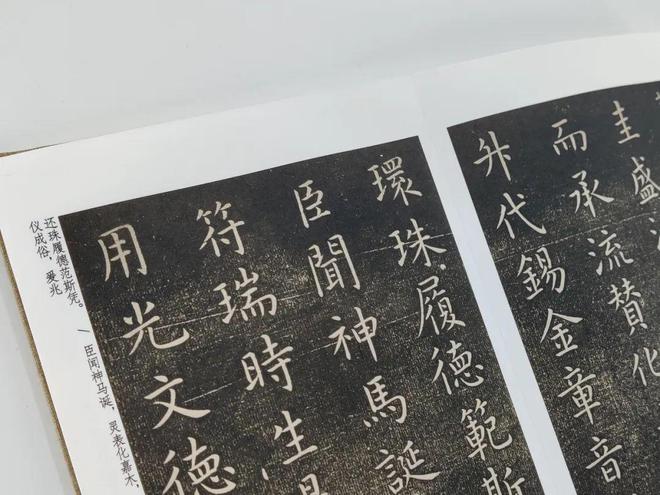 圭盛
而承流賛化
升代錫金章音
環珠履德範斯
臣聞神馬誕
符瑞時生
用光文德
还珠履德范斯凭。／臣闻神马诞，灵表化嘉木，
仪成俗，爰兆